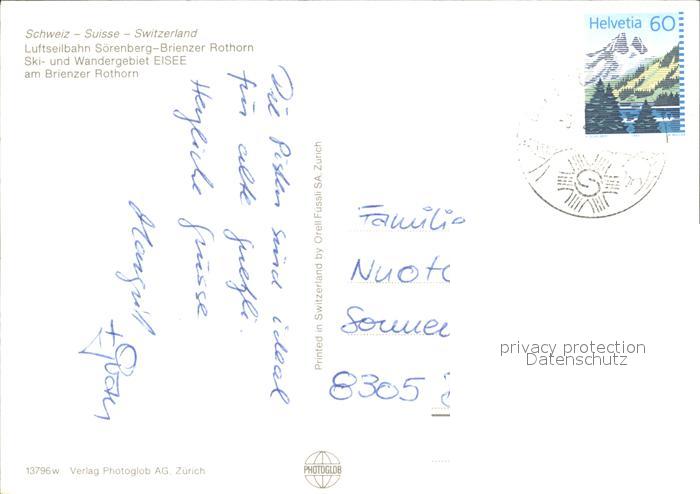 Schweiz – Suisse – Switzerland
Luftseilbahn Sörenberg–Brienzer Rothorn
Ski- und Wandergebiet EISEE
am Brienzer Rothorn
Helvetia 60
Die Pisten sind ideal
für alte
Herzliche Grüsse
Printed in Switzerland by Orell Füssli SA Zürich
Familie
Nuot
Sonne
8305
privacy protection
Datenschutz
13796w Verlag Photoglob AG, Zürich
PHOTOGLOB